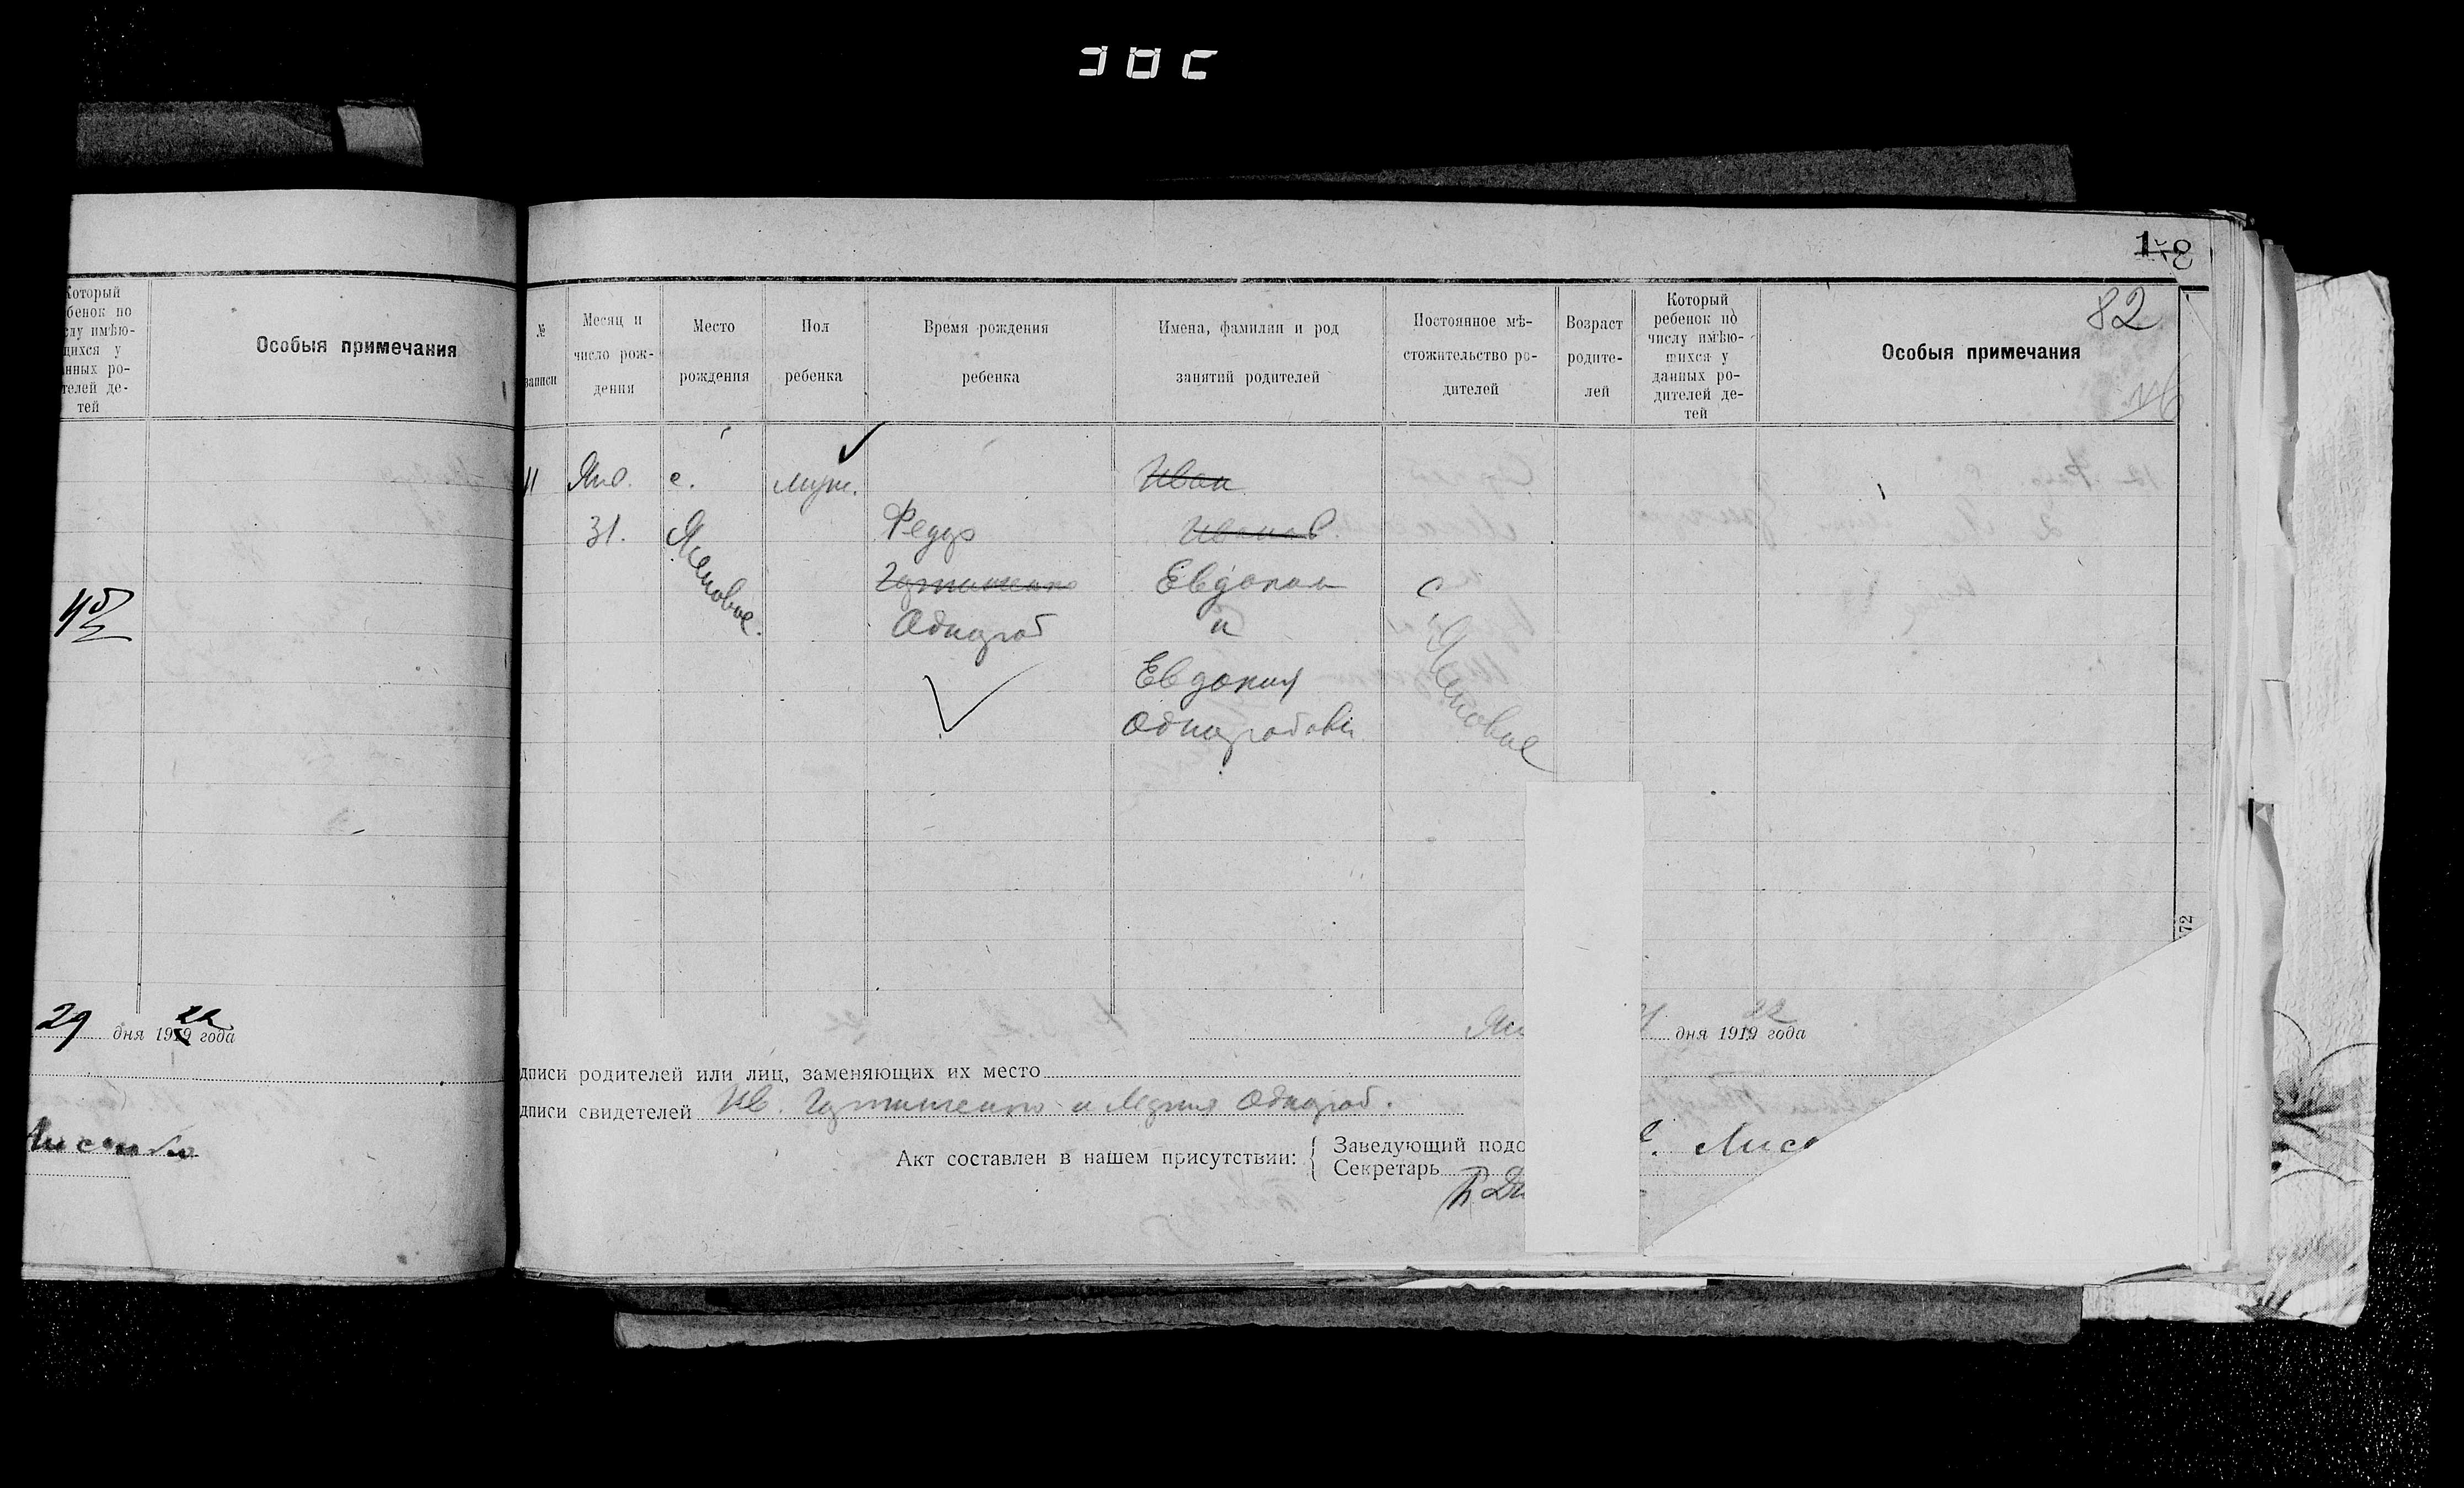 Который
бенок по
слу имѣю-
щихся у
анных ро-
телей де-
тей
Особыя примечания
29 дня 1919 22 года
82
№
записи
Месяц и
число рож-
дения
Место
рождения
Пол
ребенка
Время рождения
ребенка
Имена, фамилии и род
занятий родителей
Постоянное мѣ-
стожительство ро-
дителей
Возраст
родите-
лей
Который
ребенок по
числу имѣю-
щихся у
данных ро-
дителей де-
тей
Особыя примечания
11 Янв. с. муж. Иван
31. Федор Иванов
Евдоким с
Однороб и
Евдокия
Одноробовы
72
Ян дня 1919 22 года
дписи родителей или лиц, заменяющих их место
дписи свидетелей Ив. и Однороб.
Акт составлен в нашем присутствии:
Заведующий подо
Лисе
Секретарь